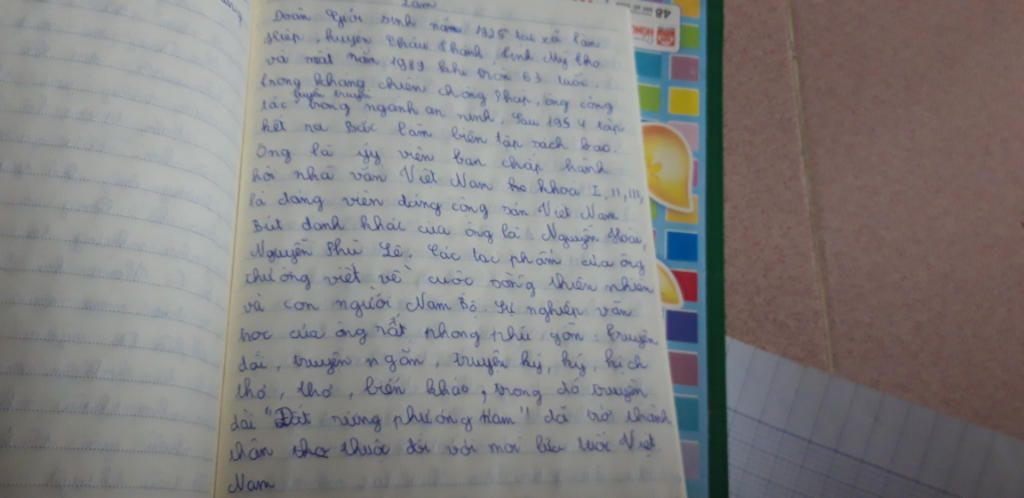 Làm
Đoàn Giỏi sinh năm 1925 tại xã Tân
Hiệp, huyện Châu Thành, tỉnh Mỹ Tho
và mất năm 1989 khi tròn 63 tuổi.
Trong kháng chiến chống Pháp, ông công
tác tuyên truyền trong ngành an ninh. Sau 1954 tập
kết ra Bắc làm biên tập sách báo.
Ông là ủy viên ban chấp hành
hội nhà văn Việt Nam khoá I, II, III,
là đảng viên đảng cộng sản Việt Nam.
Bút danh khác của ông là: Nguyễn Hoài,
Nguyễn Phú Lễ. Các tác phẩm của ông
thường viết về cuộc sống thiên nhiên
và con người Nam Bộ. Sự nghiệp văn
học của ông rất phong phú gồm: truyện
dài, truyện ngắn, truyện ký, ký, kịch
thơ, thơ, biên khảo, trong đó truyện
dài "Đất rừng phương Nam" đã trở thành
thân thuộc đối với mọi lứa tuổi Việt
Nam
48